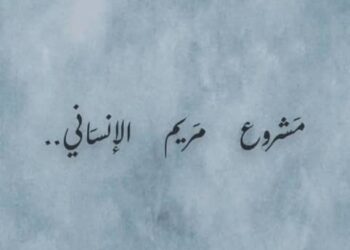 مَشروع مَريم الإنسَاني..